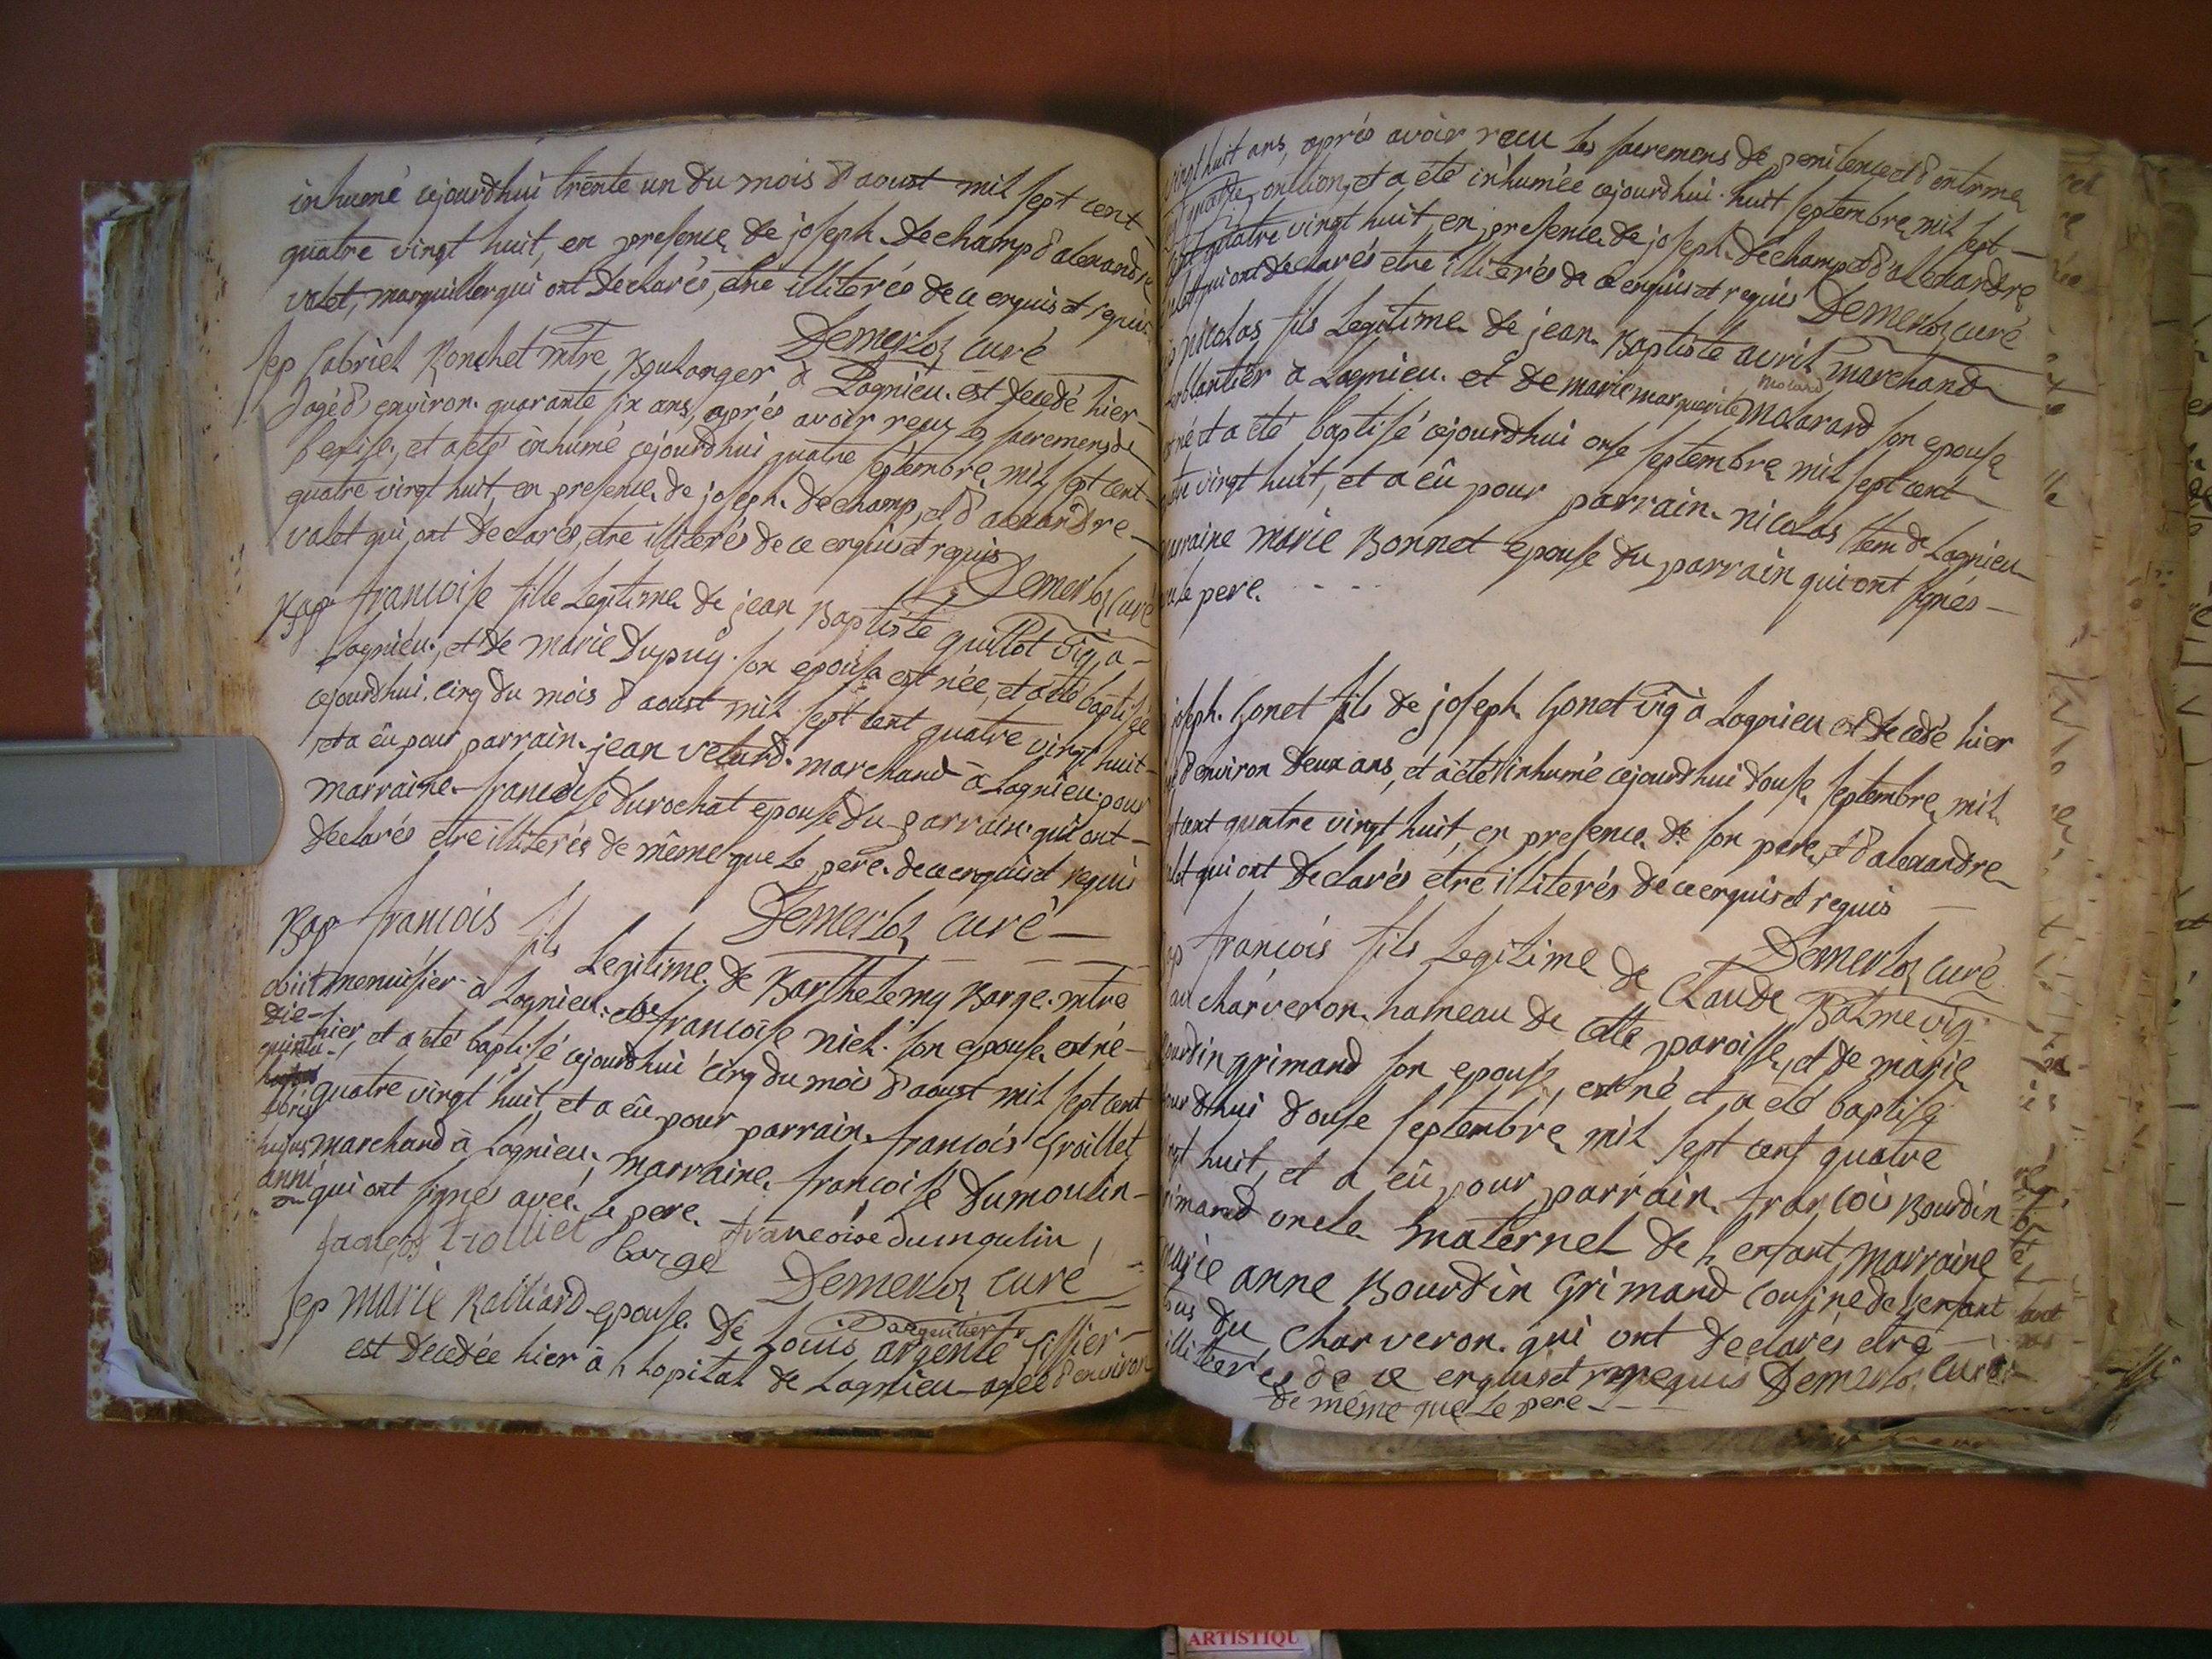 inhumé cejourdhui trente un du mois d'aoust mil sept cent
quatre vingt huit, en presence de joseph Dechamp d'alexandre
valet, marguiller qui ont declarés, etre illiterés de ce enquis et requis
Demerloz curé
Sep Gabriel Ronchet mtre Boulanger à Lagnieu est decedé hier
agé d'environ quarante six ans, aprés avoir reçu les sacremens de
l'eglise, et a été inhumé cejourdhui quatre septembre mil sept cent
quatre vingt huit, en presence de joseph Dechamp, et d'alexandre
valet qui ont declarés, etre illiterés de ce enquis et requis
Demerloz curé
Bap francoise fille Legitime de jean Baptiste quillot vig a
Lagnieu, et de marie Dupuy son epouse est née, et a été baptisée
cejourdhui cinq du mois d'aoust mil sept cent quatre vingt huit
et a êu pour parrain jean velard marchand à Lagnieu pour
marraine francoise Durochat epouse du parrain qui ont
declarés etre illiterés de même que le pere de ce enquis et requis
Demerloz curé
Bap francois fils Legitime de Barthelemy Barge mtre
menuisier à Lagnieu et de francoise niel son epouse est né
hier, et a été baptisé cejourdhui cinq du mois d'aoust mil sept cent
quatre vingt huit, et a êu pour parrain francois Groillet
marchand à Lagnieu, marraine francoise Dumoulin
qui ont signés avec le pere.
obiit
die
hujus
anni
francoise dumoulin
barge
Demerloz curé
Sep marie Railliard epouse de Louis argente tissier
argentier
est decedée hier à l hopital de Lagnieu agée d'environ
vingt huit ans, aprés avoir reçu les sacremens de penitence et d'entrme
onction, et a été inhumée cejourdhui huit septembre mil sept
cent quatre vingt huit, en presence de joseph Dechamp et d'alexandre
valet qui ont declarés etre illiterés de ce enquis et requis Demerloz curé
nicolas fils Legitime de jean Baptiste avril marchand
à Lagnieu et de marie marguerite molarard son epouse
molard
est né et a été baptisé cejourdhui onse septembre mil sept cent
quatre vingt huit, et a êu pour parrain nicolas de Lagnieu
marraine marie Bonnet epouse du parrain qui ont signés
le pere.
joseph Gonet fils de joseph Gonet vig à Lagnieu est decedé hier
d'environ deux ans, et a été inhumé cejourdhui douse septembre mil
sept cent quatre vingt huit, en presence de son pere, et d'alexandre
valet qui ont declarés etre illiterés de ce enquis et requis
Demerloz curé
Bap francois fils Legitime de Claude Balme vig
au charveron hameau de cette paroisse, et de marie
Bourdin grimand son epouse, est né et a été baptisé
cejourdhui douse septembre mil sept cent quatre
vingt huit, et a êu pour parrain francois Bourdin
grimand oncle maternel de l enfant, marraine
marie anne Bourdin Grimand cousine de l enfant
tous du charveron qui ont declarés etre
illiterés de ce enquis et requis Demerloz curé
de même que le pere
ARTISTIQU